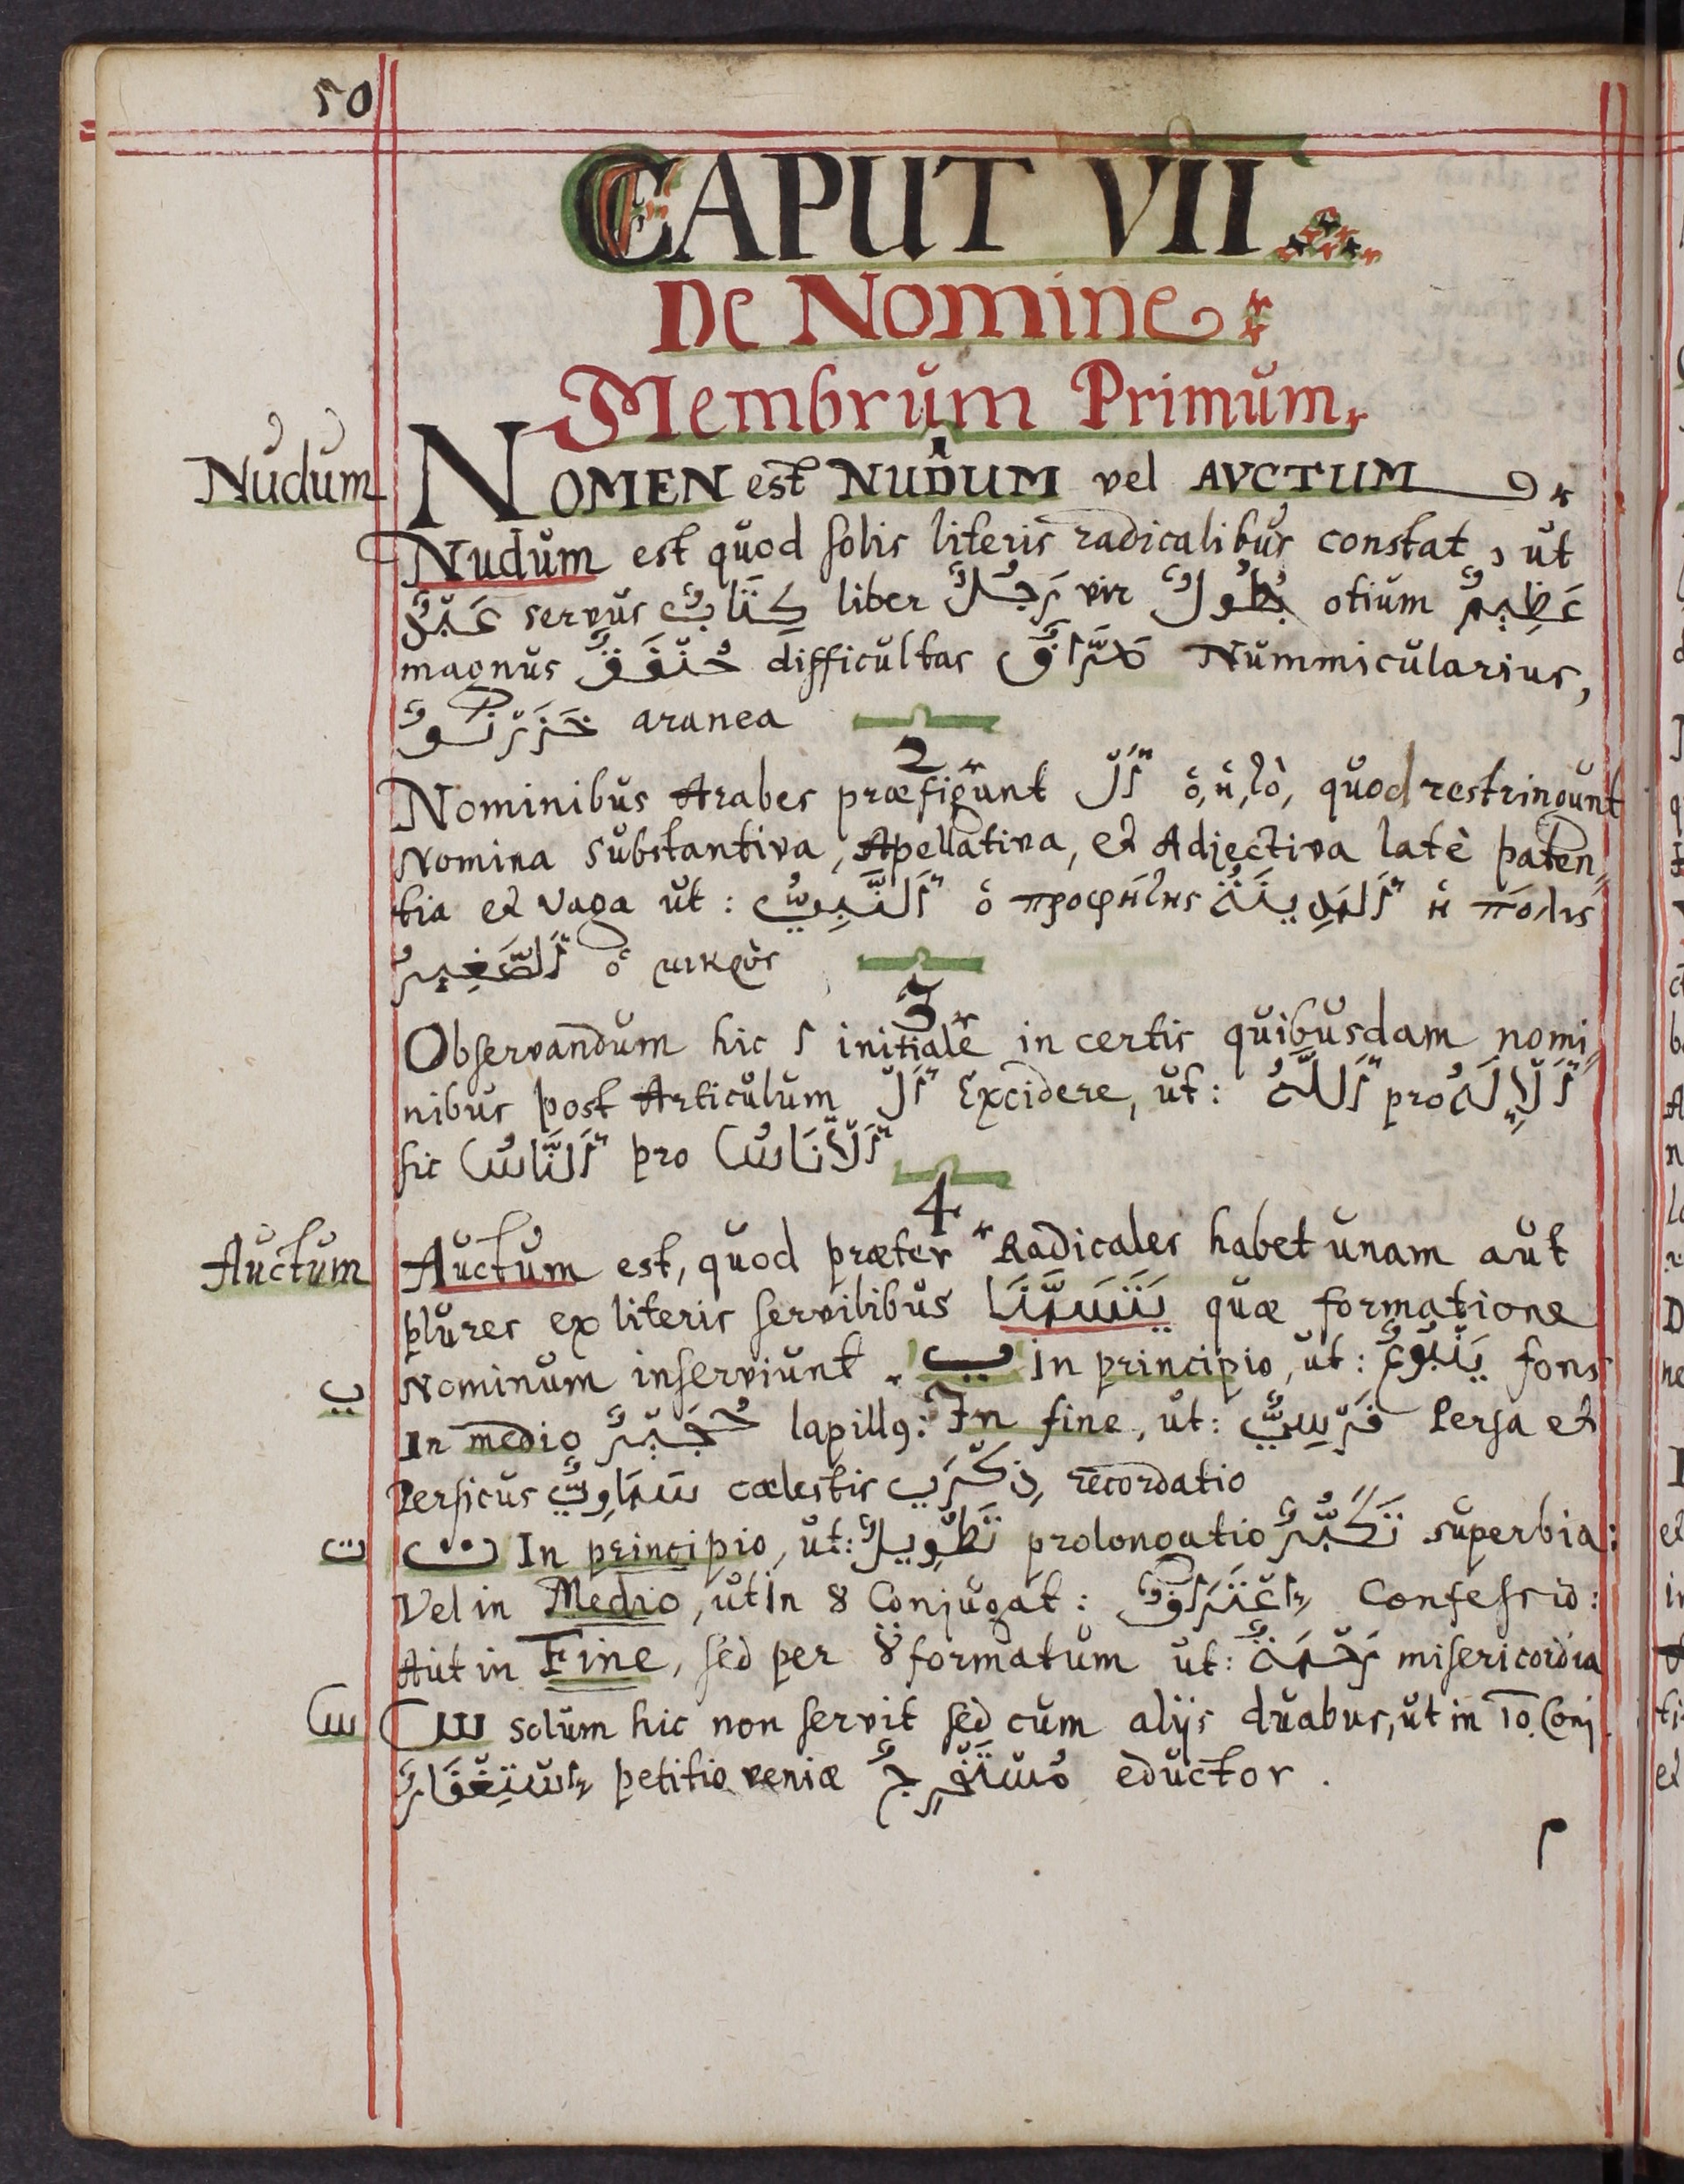 50
CAPUT VII
De Nomine
Membrum Primum
1
Nudum
NOMEN est NUDUM vel AVCTUM
Nudum est quod solis literis radicalibus constat, ut
عَبْدٌ servus كِتَابٌ liber رَجُلٌ vir بُطُولٌ otium عَظِيمٌ
magnus difficultas صَرَّافٌ Nummicularius,
aranea
2
Nominibus Arabes præfigunt اَلْ ὁ, ἡ, τὸ, quod restringunt
Nomina substantiva, Apellativa, et Adjectiva latè paten,
tia et vaga ut: اَلنَّبِيُّ ὁ προφήτης اَلمَدِينَةُ ἡ πόλις
اَلصَّغِيرُ ὁ μικρὸς
3
Observandum hic ا initiale in certis quibusdam nomi,
nibus post Articulum اَلْ Excidere, ut: اَللَّهُ pro اَلْإِلَهُ
sic اَلنَّاسُ pro اَلْأُنَاسُ
4
Auctum
Auctum est, quod præter Radicales habet unam aut
plures ex literis servilibus يَتَسَمَّنَا quæ formatione
Nominum inserviunt. ي In principio, ut: يَنْبُوعٌ fons
ي
In medio حُجَيْرٌ lapillꝰ: In fine, ut: فَرْسِيٌّ Persa et
Persicus سَمَاوِيٌّ cælestis ذِكْرَي recordatio
ت
ت In principio, ut: تَطْوِيلٌ prolongatio تَكَبُّرٌ superbia:
Vel in Medio, ut in 8 Conjugat: اِعْتِرَافٌ Confessio:
Aut in Fine, sed per ة formatum ut: رَحْمَةٌ misericordia
س
س solum hic non servit sed cum alijs duabus, ut in 10. Conj.
اِسْتِغْفَارٌ petitio veniæ مُسْتَخْرِجٌ eductor.
م